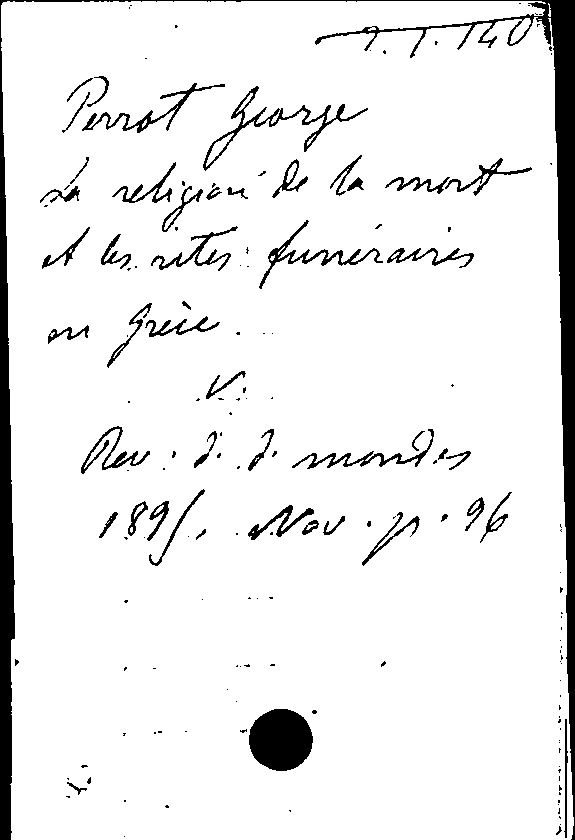 Perrot George
La religion de la mort
et les rites funéraires
en Grèce.
V.
Rev. d. d. mondes
1895, Nov. p. 96